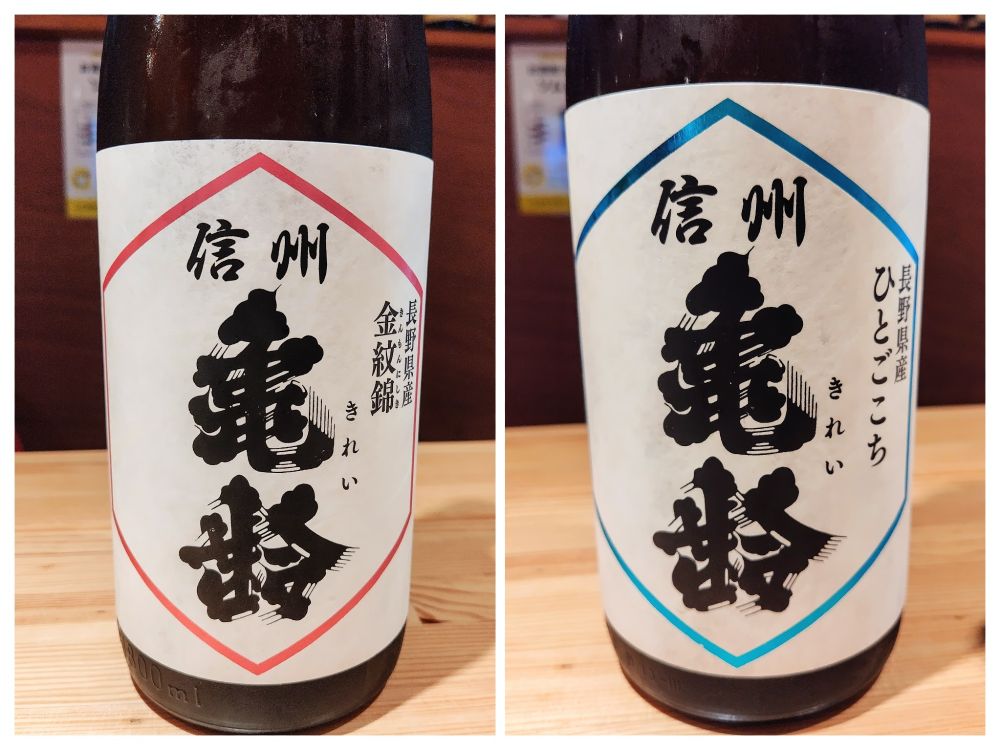 信州
亀齢
きれい
長野県産
金紋錦
きんもんにしき
800ml
信州
亀齢
きれい
長野県産
ひとごこち